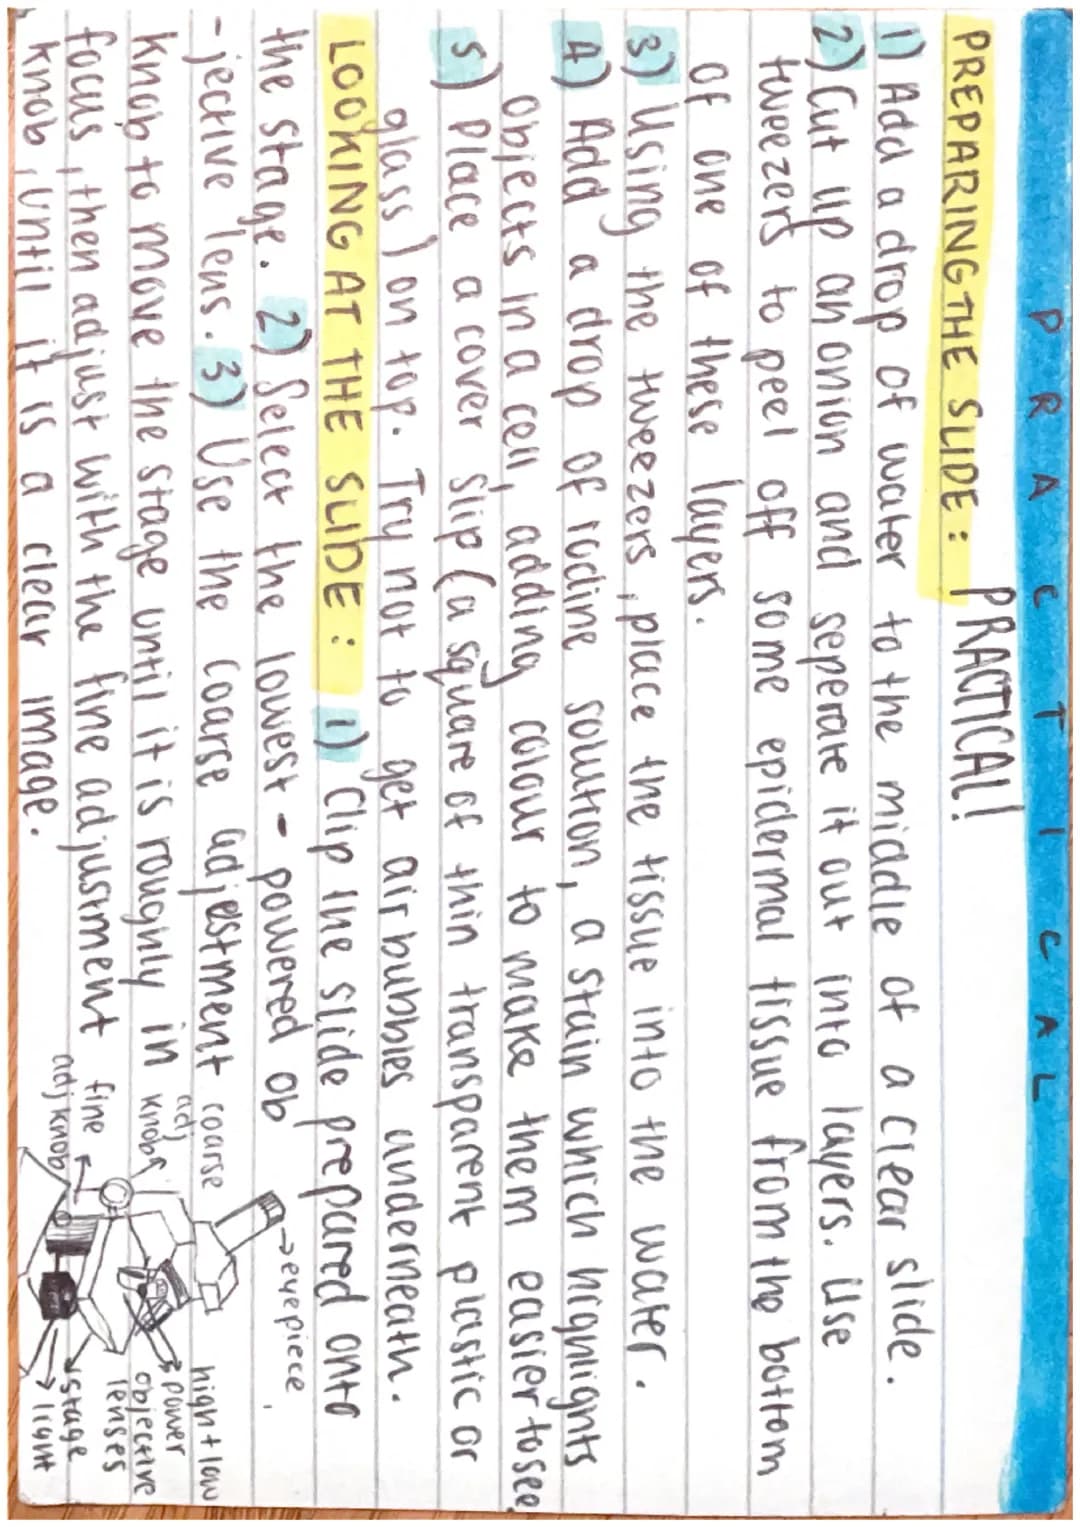 PRACTICAL
PREPARING THE SLIDE: PRACTICAL!
1) Add a drop of water to the middle of a clear slide.
2) Cut up an onion and seperate it out into layers. Use
tweezers to peel off some epidermal tissue from the bottom
of one of these layers.
3) Using the tweezers, place the tissue into the water.
4) Add a drop of iodine solution, a stain which highlights
objects in a cell, adding colour to make them easier to see
5) Place a cover slip (a square of thin transparent plastic or
glass) on top. Try not to get air bubbles underneath.
LOOKING AT THE SLIDE: 1) Clip the slide prepared onto
the stage. 2) Select the lowest - powered ob
- jective lens. 3) Use the coarse adjestment
knob to move the stage until it is roughly in
focus, then adjust with the fine adjustment
knob, until it is a clear image.
eyepiece
coarse
adj
knob
fine
adj knob
high + low
power
objective
lenses
stage
light